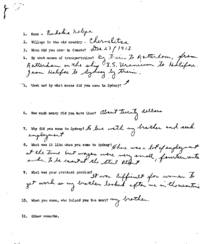 1. Name - Pudoka Kelpa
2. Village in the old country - Chernelitsa
3. When did you come to Canada? Dec 23/1913
4. By what means of transportation? By Train to Rotterdam, from
Rotterdam on the ship S.S. Uranium to Halifax
from Halifax to Sydney by train.
5. What and by what means did you come to Sydney?
6. How much money did you have then? About twenty dollars
7. Why did you come to Sydney? To live with my brother and seek
employment
8. What was it like when you came to Sydney? There was lots of employment
at the time but wages were very small, fourteen cents
an hr. to start at the Steel Plant
9. What was your greatest problem? It was difficult for woman to
get work so my brother looked after me in the meantime
10. When you came, who helped you the most? my brother
11. Other remarks.